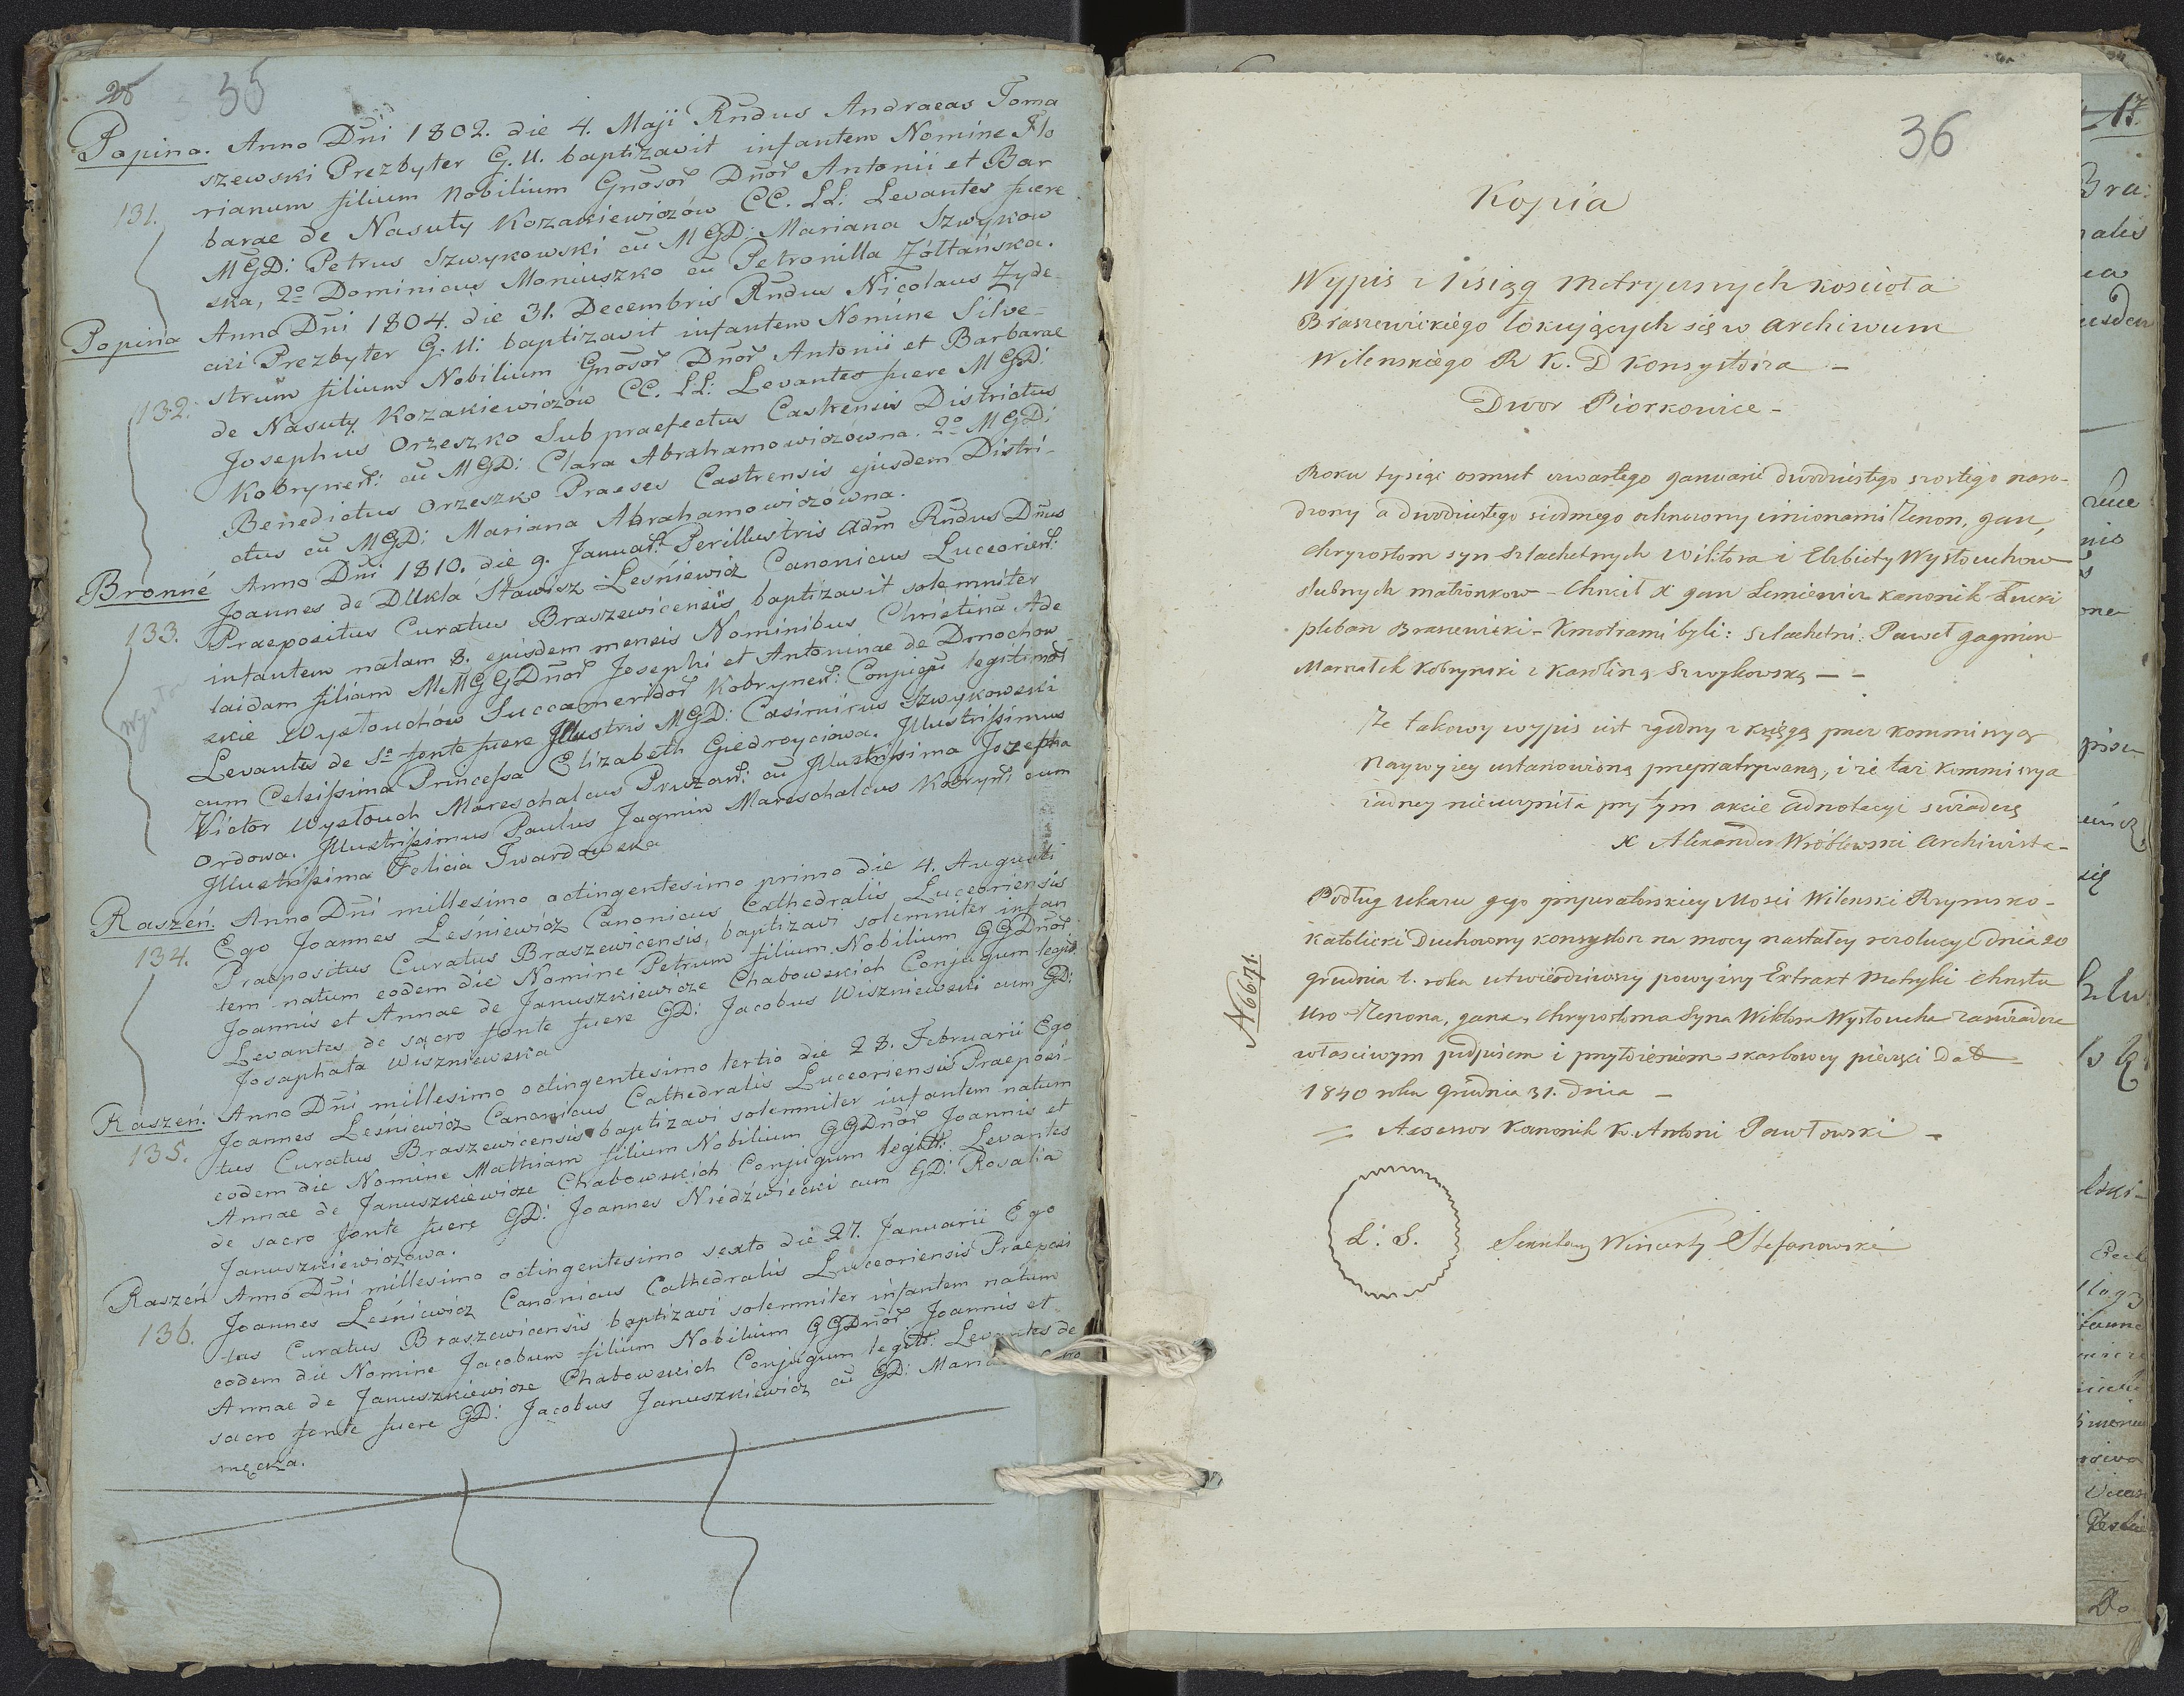 28 35
Popina. Anno Dñi 1802. die 4. Maji Rndus Andraeas Toma
szewski Prezbyter G. U. baptizavit infantem Nomine Flo
131. rianum filium Nobilium Gnosor Dñor Antonii et Bar
barae de Nasuty Kozakiewiczów CC. LL. Levantes fuere
MGD: Petrus Szwykowski cũ MGD: Mariana Szwykow
ska, 2º Dominicus Moniuszko cũ Petronilla Żółtańska.
Popina Anno Dñi 1804. die 31. Decembris Rndus Nicolaus Zyde-
cki Prezbyter G. U: baptizavit infantem Nomine Silve-
132. strum filium Nobilium Gnosor Dñor Antonii et Barbarae
de Nasuty Kozakiewiczów CC. LL: Levantes fuere MGD:
Josephus Orzeszko Subpraefectus Castrensis Districtus
Kobrynen: cũ MGD: Clara Abrahamowiczówna. 2º MGD:
Benedictus Orzeszko Praeses Castrensis ejusdem Distri-
ctus cũ MGD: Mariana Abrahamowiczówna.
Bronné Anno Dñi 1810. die 9. Januar. Perillustris Adm Rndus Dñus
Joannes de Dukla Stawisz Leśniewicz Canonicus Luceorien:
133. Praepositus Curatus Braszewicensis baptizavit solemniter
infantem natam 8. ejusdem mensis Nominibus Christina Ade
laidam filiam MMGGDnor Josephi et Antoninae de Domochow
skie Wysłouchów Succamerdor Kobrynen: Conjugũ legitimor
Levantes de Sº fonte fuere Illustris MGD: Casimirus Szwykowski
cum Celsissima Princessa Elizabeth Giedroyciowa. Illustrissimus
Victor Wysłouch Mareschalcus Pruzan: cũ Illustrissima Josepha
Ordowa. Illustrissimus Paulus Jagmin Mareschalcus Kobryn: cum
Illustrissima Felicia Twardowska
Raszeń. Anno Dñi millesimo octingentesimo primo die 4. Augusti
134. Ego Joannes Leśniewicz Canonicus Cathedralis Luceoriensis
Praepositus Curatus Braszewicensis, baptizavi solemniter infan
tem natum eodem die Nomine Petrum filium Nobilium GGDnor
Joannis et Annae de Januszkiewicze Chabowskich Conjugum legit.
Levantes de sacro fonte fuere GD: Jacobus Wiszniewski cum GD:
Josaphata Wiszniewska
Raszeń. Anno Dñi millesimo octingentesimo tertio die 28. Februarii Ego
135. Joannes Leśniewicz Canonicus Cathedralis Luceoriensis Praeposi-
tus Curatus Braszewicensis baptizavi solemniter infantem natum
eodem die Nomine Mathiam filium Nobilium GGDnor Joannis et
Annae de Januszkiewicze Chabowskich Conjugum legitt: Levantes
de sacro fonte fuere GD: Joannes Niedźwiecki cum GD: Rosalia
Januszkiewiczowa.
Raszeń Anno Dñi millesimo octingentesimo sexto die 27. Januarii Ego
136. Joannes Leśniewicz Canonicus Cathedralis Luceoriensis Praeposi
tus Curatus Braszewicensis baptizavi solemniter infantem natum
eodem die Nomine Jacobum filium Nobilium GGDnor Joannis et
Annae de Januszkiewicze Chabowskich Conjugum legitt: Levantes de
sacro fonte fuere GD: Jacobus Januszkiewicz cũ GD:
męcka.
36
Kopia
Wypis z Xsiąg Metrycznych kościoła
Braszewickiego lokujących się w Archiwum
Wilenskiego R K. D Konsystorza –
Dwor Piorkowice –
Roku tysiąc osmset czwartego Januarii dwódziestego szostego naro-
dzony a dwódziestego siodmego ochrzczony imionami Zenon, Jan,
Chryzostom syn Szlachetnych Wiktora i Elzbiety Wysłouchow
slubnych małżonkow – Chrzcił X Jan Lesniewicz kanonik Łucki
pleban Braszewicki – Kmotrami byli: Szlachetni: Paweł Jagmin
Marszałek Kobrynski z Karoliną Szwykowską – –
Ze takowy wypis iest zgodny z księgą przez kommissyą
Naywyżey ustanowioną przepatrywaną, i że taż Kommissya
żadney nieuczyniła przy tym akcie adnotacyi świadczę
X Alexander Wróblewski Archiwista –
N 6671.
Podług ukazu Jego Imperatorskiey Mosci Wilenski Rzymsko-
Katolicki Duchowny Konsystorz na mocy nastałey rezolucyi dnia 20
grudnia t. roku utwierdziwszy powyższy Extrakt Metryki Chrztu
Uro Zenona, Jana, Chryzostoma Syna Wiktora Wysłoucha zaświadcza
właściwym podpisem i przyłożeniem skarbowey pieczęci Dat
1840 roku Grudnia 31. dnia –
Assessor Kanonik K. Antoni Pawłowski –
L. S.
Sekretarz Wincenty Stefanowski
17.